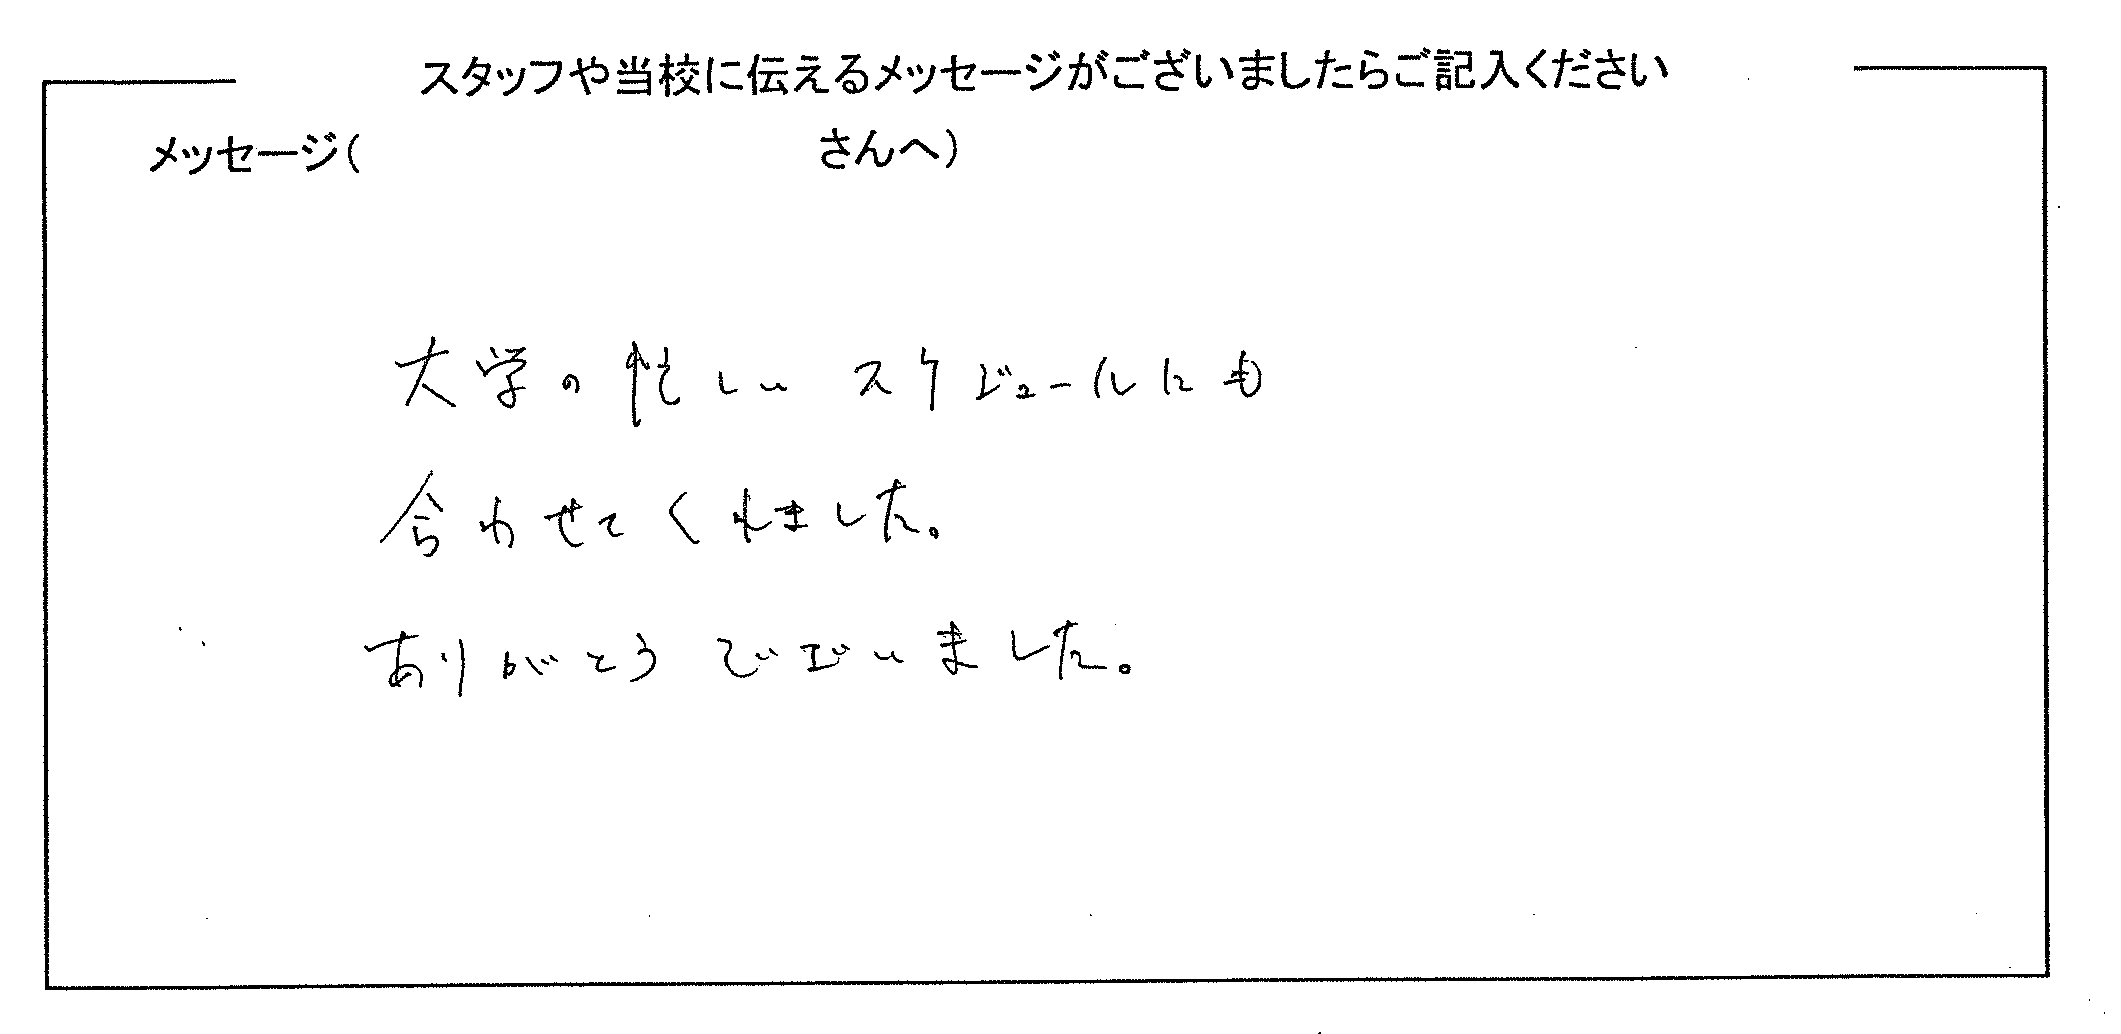 スタッフや当校に伝えるメッセージがございましたらご記入ください
メッセージ(　　　　　　　　　　さんへ)
大学の忙しい スケジュールにも
合わせてくれました。
ありがとう ございました。